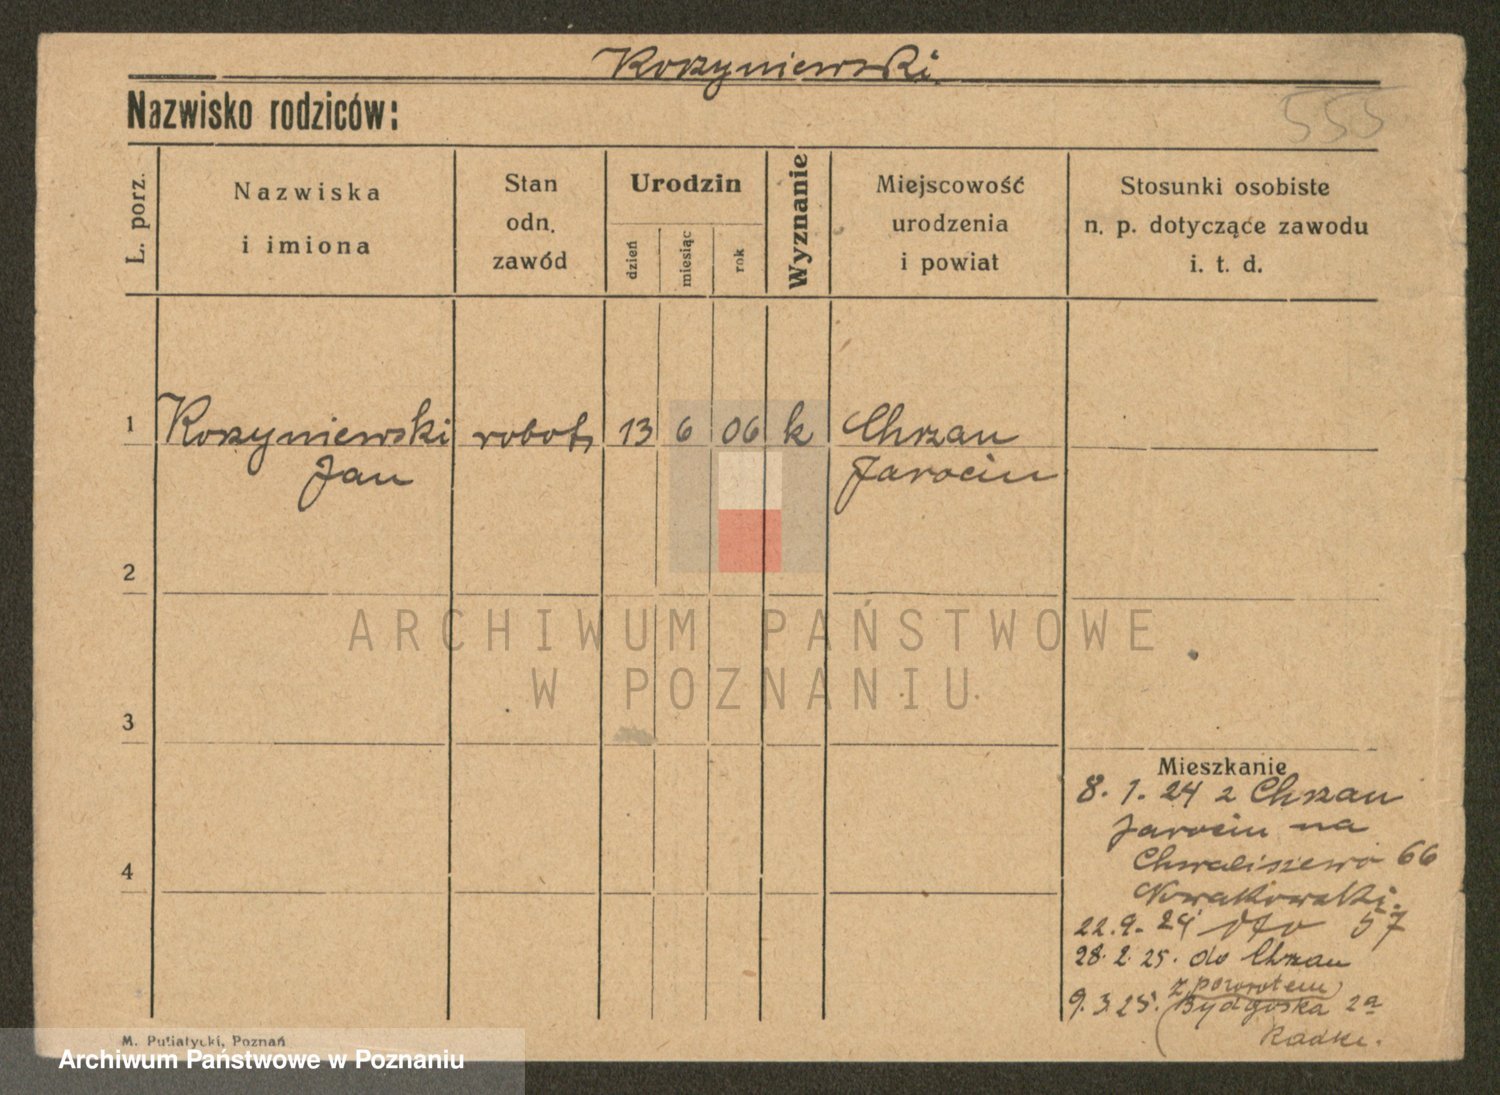 Kozyniewski
Nazwisko rodziców:
555
L. porz.
Nazwiska
i imiona
Stan
odn.
zawód
Urodzin
dzień
miesiąc
rok
Wyznanie
Miejscowość
urodzenia
i powiat
Stosunki osobiste
n. p. dotyczące zawodu
i. t. d.
1 Kozyniewski robot. 13 6 06 k Chrzan
Jan Jarocin
2
ARCHIWUM PAŃSTWOWE
W POZNANIU
3
Mieszkanie
8. 1. 24 z Chrzan
Jarocin na
4
Chwaliszewo 66
Nowakowski.
22. 9. 24 dto 57
28. 2. 25. do Chrzan
z powrotem
9. 3. 25. Bydgoska 2a
Radke.
M. Putiatycki, Poznań
Archiwum Państwowe w Poznaniu